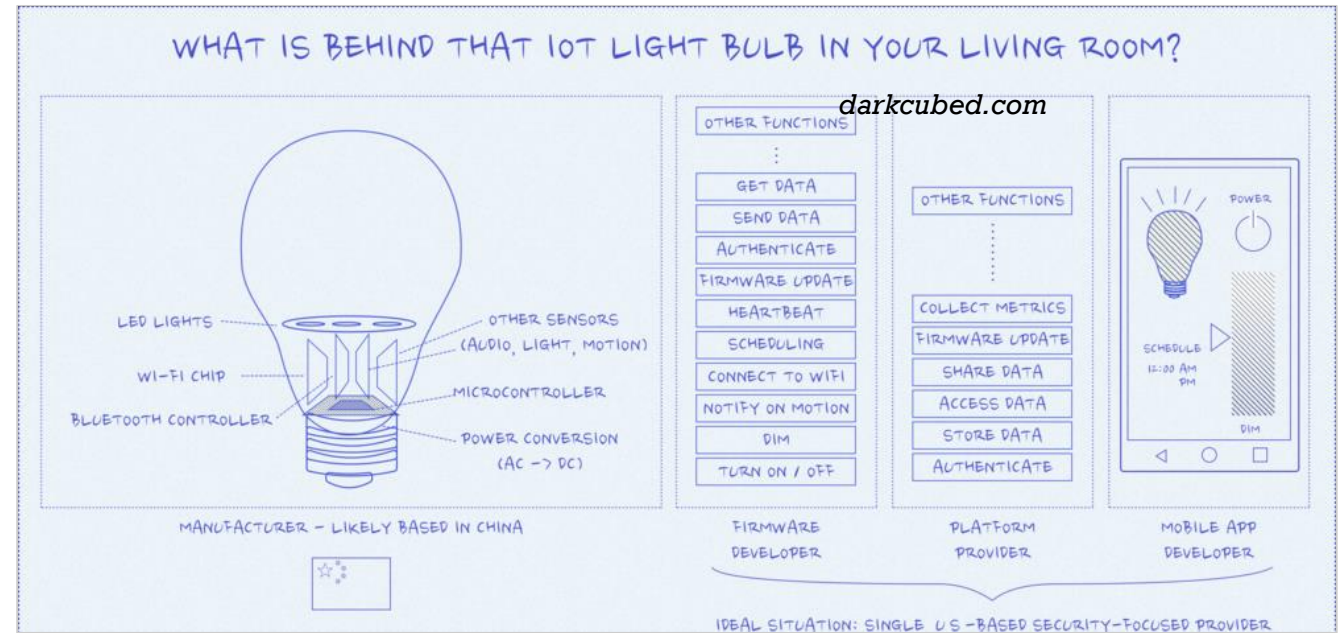 WHAT IS BEHIND THAT IOT LIGHT BULB IN YOUR LIVING ROOM?
darkcubed.com
LED LIGHTS
WI-FI CHIP
BLUETOOTH CONTROLLER
OTHER SENSORS
(AUDIO, LIGHT, MOTION)
MICROCONTROLLER
POWER CONVERSION
(AC -> DC)
MANUFACTURER - LIKELY BASED IN CHINA
OTHER FUNCTIONS
GET DATA
SEND DATA
AUTHENTICATE
FIRMWARE UPDATE
HEARTBEAT
SCHEDULING
CONNECT TO WIFI
NOTIFY ON MOTION
DIM
TURN ON / OFF
FIRMWARE
DEVELOPER
OTHER FUNCTIONS
COLLECT METRICS
FIRMWARE UPDATE
SHARE DATA
ACCESS DATA
STORE DATA
AUTHENTICATE
PLATFORM
PROVIDER
POWER
SCHEDULE
12:00 AM
PM
DIM
MOBILE APP
DEVELOPER
IDEAL SITUATION: SINGLE US-BASED SECURITY-FOCUSED PROVIDER